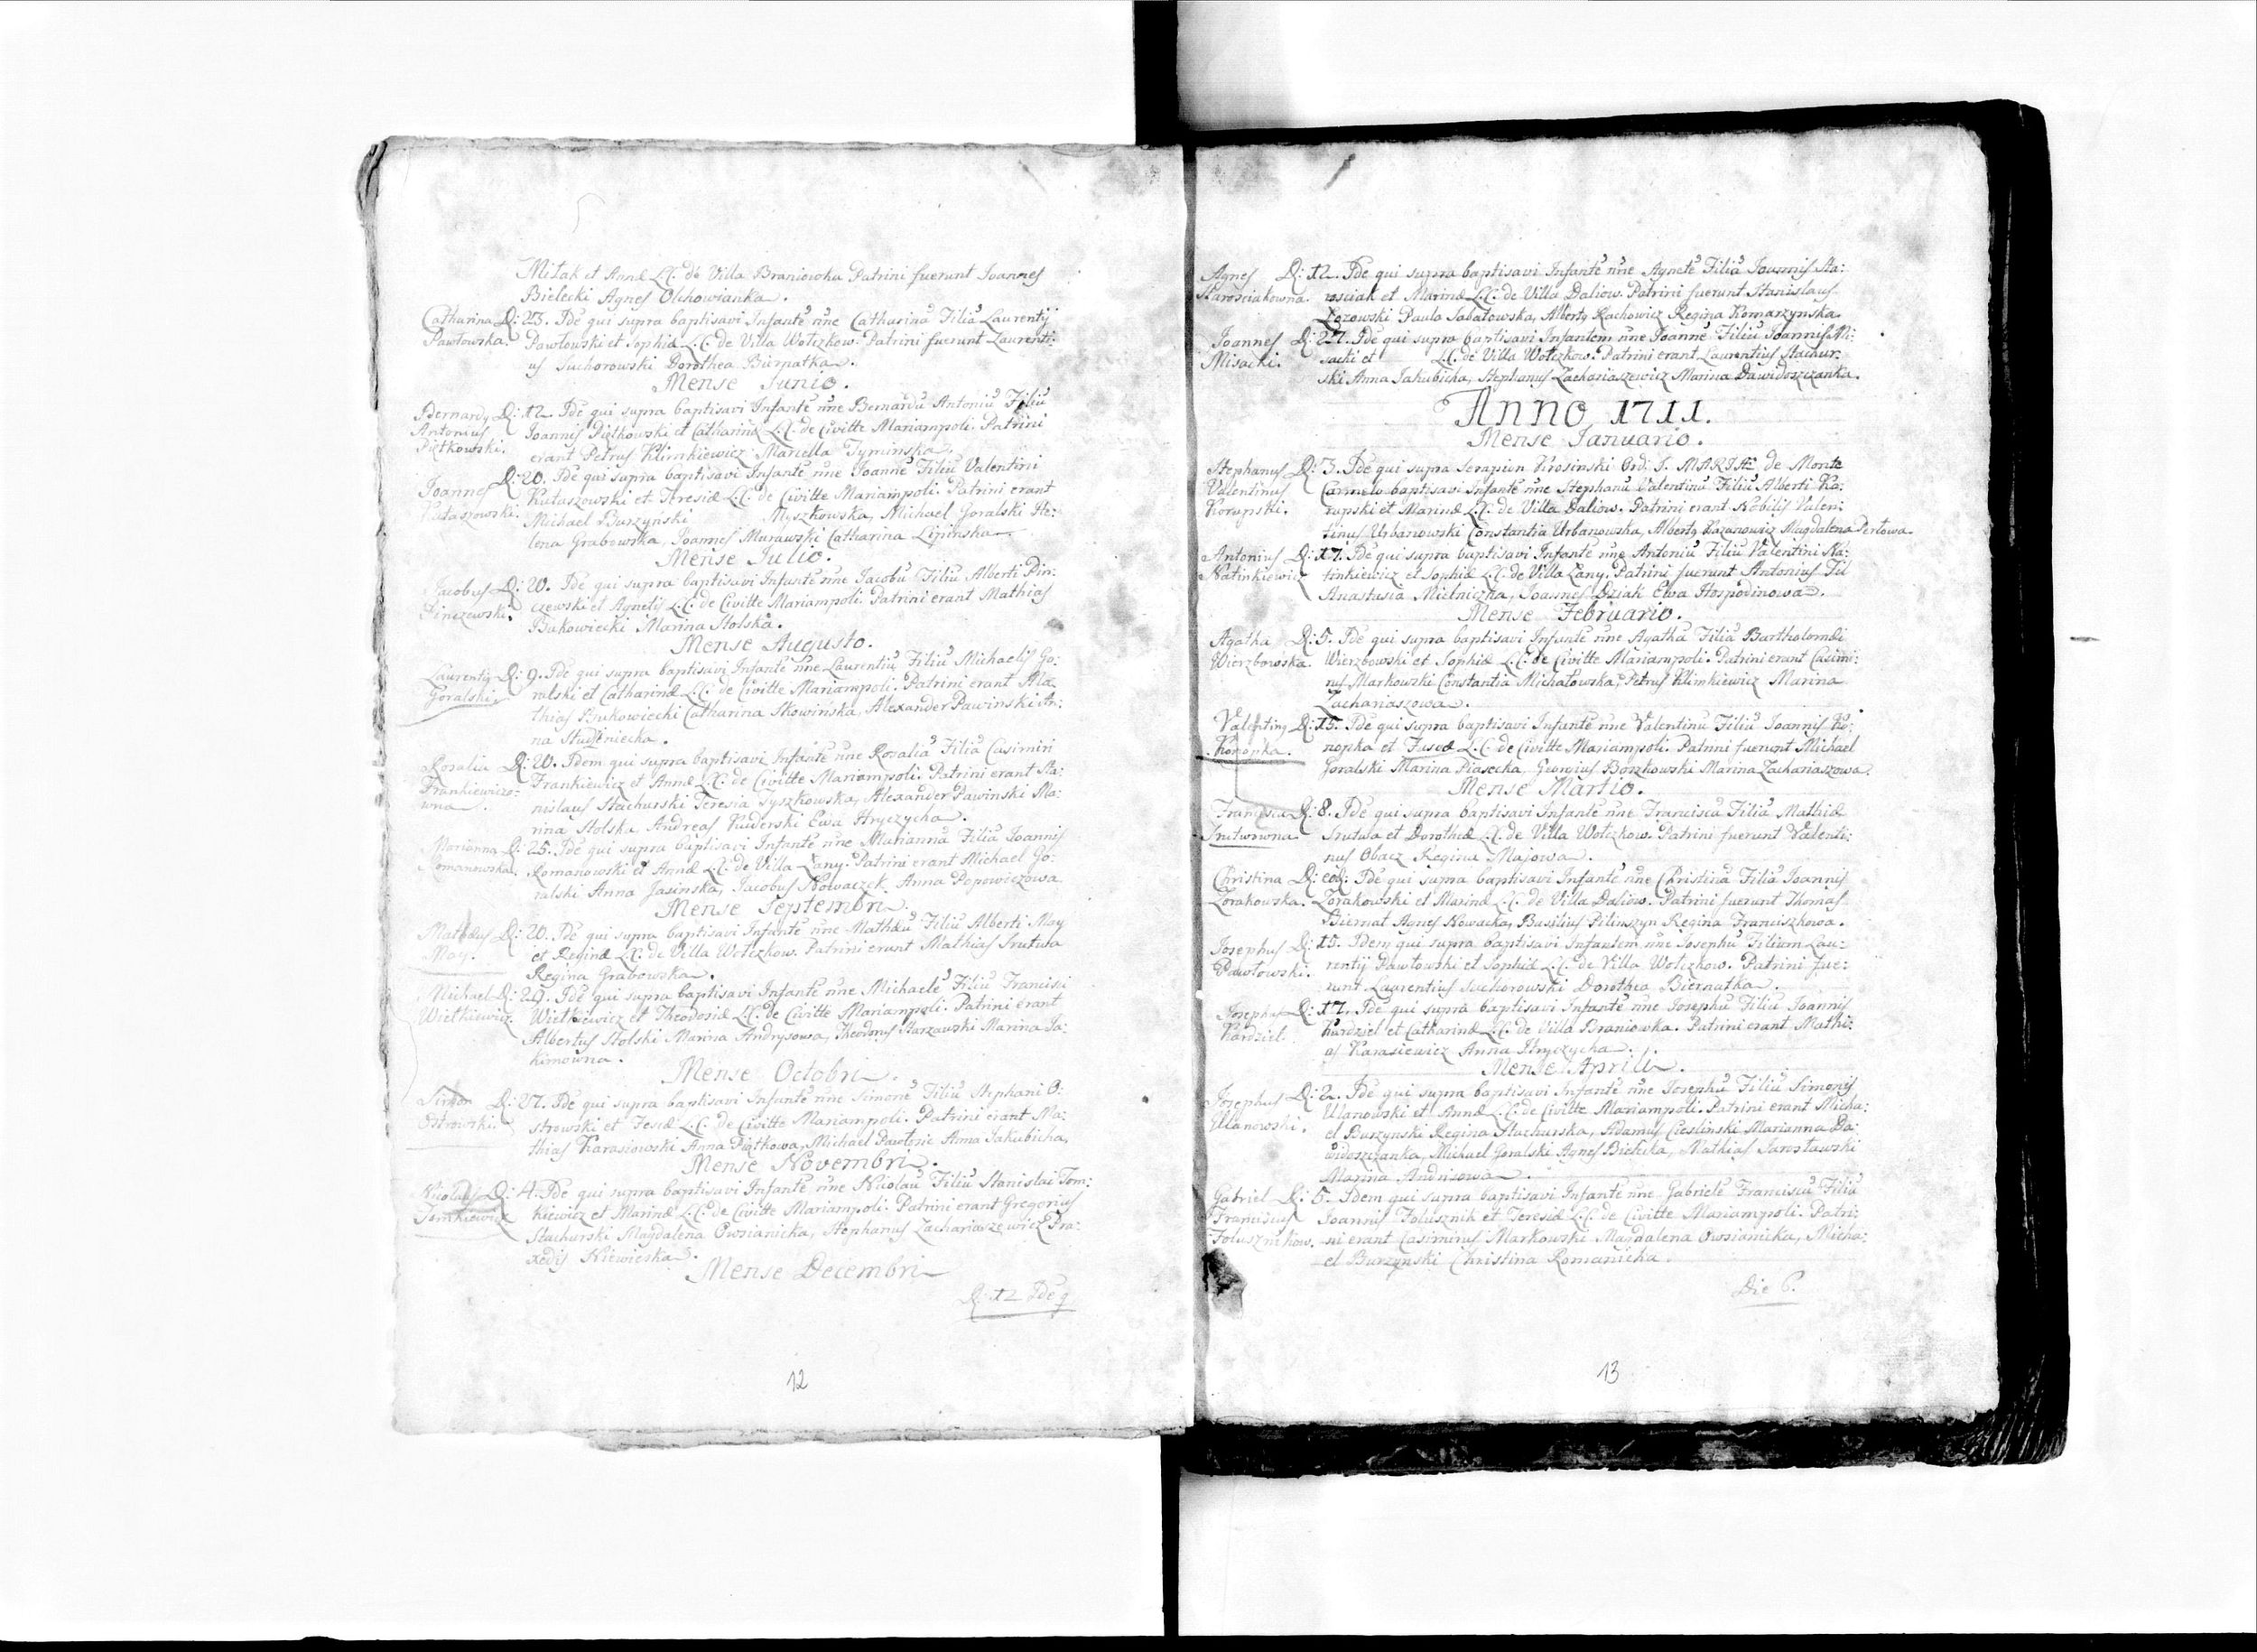 Miłak et Annæ L.C. de Villa Braniowka Patrini fuerunt Joannes
Bielecki Agnes Olchowianka.
Catharina D: 23. Ide qui supra baptisavi Infantē nñe Catharinā Filiā Laurentij
Pawłowska. Pawłowski et Sophiæ L.C. de Villa Wołczkow. Patrini fuerunt Laurenti:
us Suchorowski Dorothea Biernatka.
Mense Junio.
Bernardg D: 12. Ide qui supra baptisavi Infantē nñe Bernardū Antoniū Filiū
Antonius Joannis Piętkowski et Catharinæ L.C. de Civitte Mariampoli. Patrini
Piętkowski. erant Petrus Klimkiewicz Mariella Tyminska.
D: 20. Ide qui supra baptisavi Infantē nñe Joannē Filiū Valentini
Joannes Kutaszowski et Thresiæ L.C. de Civitte Mariampoli. Patrini erant
Kutaszowski. Michael Burzyński Myszkowska, Michael Goralski He:
lena Grabowska, Joannes Murawski Catharina Lipinska.
Mense Julio.
Jacobus D: 20. Ide qui supra baptisavi Infantē nñe Jacobū Filiū Alberti Pin:
Pinczewski. czewski et Agnetis L.C. de Civitte Mariampoli. Patrini erant Mathias
Bukowiecki Marina Stolska.
Mense Augusto.
Laurentig D: 9. Ide qui supra baptisavi Infantē nñe Laurentiū Filiū Michaelis Go:
Goralski. ralski et Catharinæ L.C. de Civitte Mariampoli. Patrini erant Ma:
thias Bukowiecki Catharina Skowińska, Alexander Pawinski An:
na Studzniecka.
Rosalia D: 20. Idem qui supra baptisavi Infantē nñe Rosaliā Filiā Casimiri
Frankiewiczo: Frankiewicz et Annæ L.C. de Civitte Mariampoli. Patrini erant Sta:
wna. nislaus Stachurski Teresia Tyszkowska, Alexander Pawinski Ma:
rina Stolska Andreas Kuderski Ewa Hryczycha.
Marianna D: 25. Ide qui supra baptisavi Infantē nñe Mariannā Filiā Joannis
Romanowska. Romanowski et Annæ L.C. de Villa Łany. Patrini erant Michael Go:
ralski Anna Jasinska, Jacobus Nowaczek Anna Popowiczowa
Mense Septembri.
Mathæus D: 20. Ide qui supra baptisavi Infantē nñe Mathæū Filiū Alberti May
May. et Reginæ L.C. de Villa Wołczkow. Patrini erant Mathias Srutwa
Regina Grabowska.
Michael D: 29. Ide qui supra baptisavi Infantē nñe Michaelē Filiū Francisci
Wietkiewicz. Wietkiewicz et Theodosiæ L.C. de Civitte Mariampoli. Patrini erant
Albertus Stolski Marina Andrysowa, Theodorus Starzawski Marina Ja:
kimowna.
Mense Octobri.
Simon D: 27. Ide qui supra baptisavi Infantē nñe Simonē Filiū Stephani O:
Ostrowski. strowski et Fesiæ L.C. de Civitte Mariampoli. Patrini erant Ma:
thias Karasiowski Anna Piątkowa, Michael Pawłosic Anna Jakubicha,
Mense Novembri.
Nicolaus D: 4. Ide qui supra baptisavi Infantē nñe Nicolaū Filiū Stanislai Tom:
Tomkiewicz kiewicz et Marinæ L.C. de Civitte Mariampoli. Patrini erant Gregorius
Stachurski Magdalena Owsianicka, Stephanus Zachariaszewicz Pra:
xedis Niewieska.
Mense Decembri
D: 12 Ide q
12
Agnes D: 12. Ide qui supra baptisavi Infantē nñe Agnetē Filiā Joannis Sta:
Starosciakowna. rosciak et Marinæ L.C. de Villa Daliow. Patrini fuerunt Stanislaus
Łozowski Paula Sabatowska, Albertg Rachowicz Regina Komarzynska
Joannes D: 27. Ide qui supra baptisavi Infantem nñe Joannē Filiū Joannis Mi:
Misacki. sacki et L.C. de Villa Wołczkow. Patrini erant Laurentius Stachur:
ski Anna Jakubicha, Stephanus Zachariaszewicz Marina Dawidoszczanka.
Anno 1711.
Mense Januario.
Stephanus D: 3. Ide qui supra Serapion Krosinski Ord: S. MARIÆ de Monte
Valentinus Carmelo baptisavi Infantē nñe Stephanū Valentinū Filiū Alberti Ko:
Korupski. rupski et Marinæ L.C. de Villa Daliow. Patrini erant Nobilis Valen:
tinus Urbanowski Constantia Urbanowska, Albertg Kazanowicz Magdalena Pertowa.
Antonius D: 17. Ide qui supra baptisavi Infantē nñe Antoniū Filiū Valentini Na:
Natinkiewicz tinkiewicz et Sophiæ L.C. de Villa Łany. Patrini fuerunt Antonius Fil
Anastasia Mielniczka, Joannes Dziak Ewa Hospodinowa.
Mense Februario.
Agatha D: 5. Ide qui supra baptisavi Infantē nñe Agathā Filiā Bartholomæi
Wierzbowska. Wierzbowski et Sophiæ L.C. de Civitte Mariampoli. Patrini erant Casimi:
rus Markowski Constantia Michałowska, Petrus Klimkiewicz Marina
Zachariaszowa.
Valenting D: 15. Ide qui supra baptisavi Infantē nñe Valentinū Filiū Joannis Ko:
Konopka. nopka et Fusiæ L.C. de Civitte Mariampoli. Patrini fuerunt Michael
Goralski Marina Piasecka, Georgius Borzkowski Marina Zachariaszowa.
Mense Martio.
Francisca D: 8. Ide qui supra baptisavi Infantē nñe Franciscā Filiā Mathiæ
Srutwowna Srutwa et Dorotheæ L.C. de Villa Wołczkow. Patrini fuerunt Valenti:
nus Obacz Regina Majowa.
Christina D: eād: Ide qui supra baptisavi Infantē nñe Christinā Filiā Joannis
Zorakowska. Zorakowski et Marinæ L.C. de Villa Daliow. Patrini fuerunt Thomas
Biernat Agnes Nowacka, Basilius Pilinszyn Regina Franciszkowa.
Josephus D: 15. Idem qui supra baptisavi Infantem nñe Josephū Filium Lau:
Pawłowski. rentij Pawłowski et Sophiæ L.C. de Villa Wołczkow. Patrini fue:
runt Laurentius Suchorowski Dorothea Biernatka.
Josephus D: 17. Ide qui suprā baptisavi Infantē nñe Josephū Filiū Joannis
Kardziel. Kardziel et Catharinæ L.C. de Villa Braniowka. Patrini erant Mathi:
as Karasiewicz Anna Hryczycha.
Mense Aprili.
Josephus D: 2. Ide qui supra baptisavi Infantē nñe Josephū Filiū Simonis
Ulanowski. Ulanowski et Annæ L.C. de Civitte Mariampoli. Patrini erant Micha:
el Burzynski Regina Stachurska, Adamus Cieslinski Marianna Da:
widoszczanka, Michael Goralski Agnes Bielecka, Mathias Jarosławski
Marina Andrisowa.
Gabriel D: 5. Idem qui supra baptisavi Infantē nñe Gabrielē Franciscū Filiū
Franciscus Joannis Folusznik et Teresiæ L.C. de Civitte Mariampoli. Patri:
Folusznikow. ni erant Casimirus Markowski Magdalena Owsianicka, Micha:
el Burzynski Christina Romanicka.
Die 6.
13